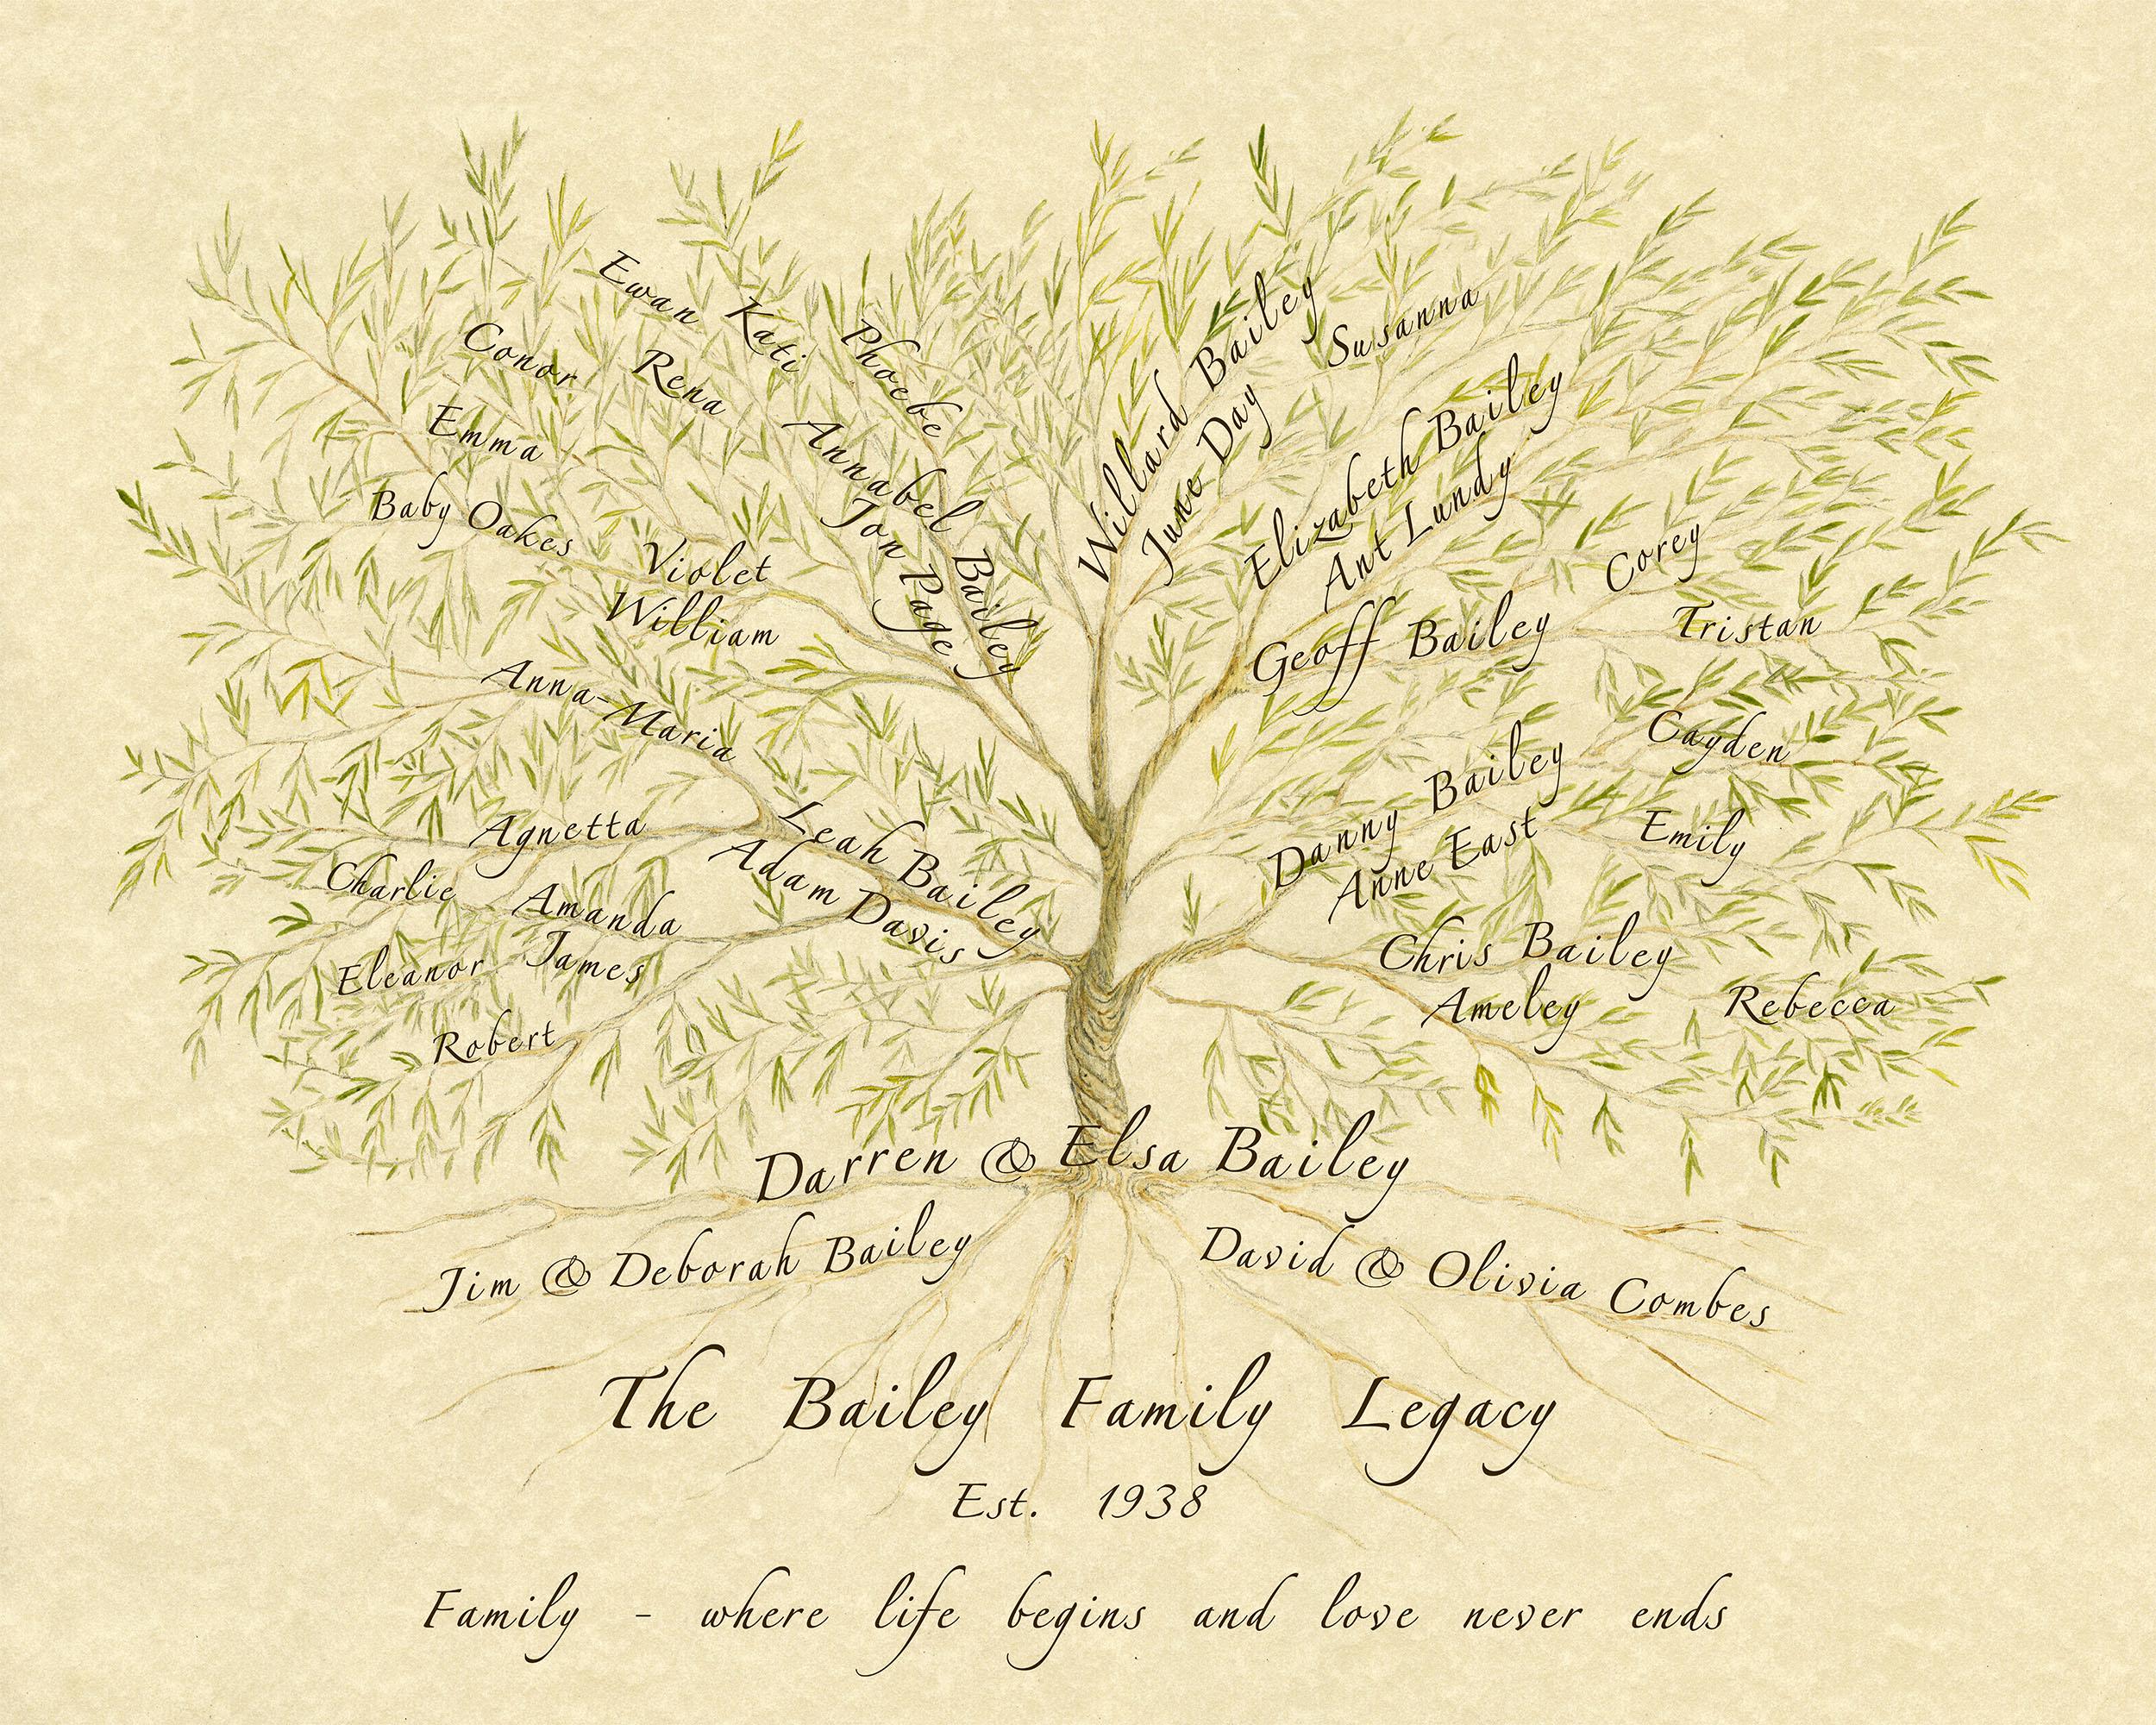 Ewan
Kati
Phoebe
Conor
Rena
Emma
Annabel Bailey
Jon Page
Baby Oakes
Violet
William
Anna-Maria
Leah Bailey
Adam Davis
Agnetta
Charlie
Amanda
James
Eleanor
Robert
Willard Bailey
June Day
Susanna
Elizabeth Bailey
Ant Lundy
Geoff Bailey
Corey
Tristan
Danny Bailey
Anne East
Cayden
Emily
Chris Bailey
Ameley
Rebecca
Darren & Elsa Bailey
Jim & Deborah Bailey
David & Olivia Combes
The Bailey Family Legacy
Est. 1938
Family - where life begins and love never ends